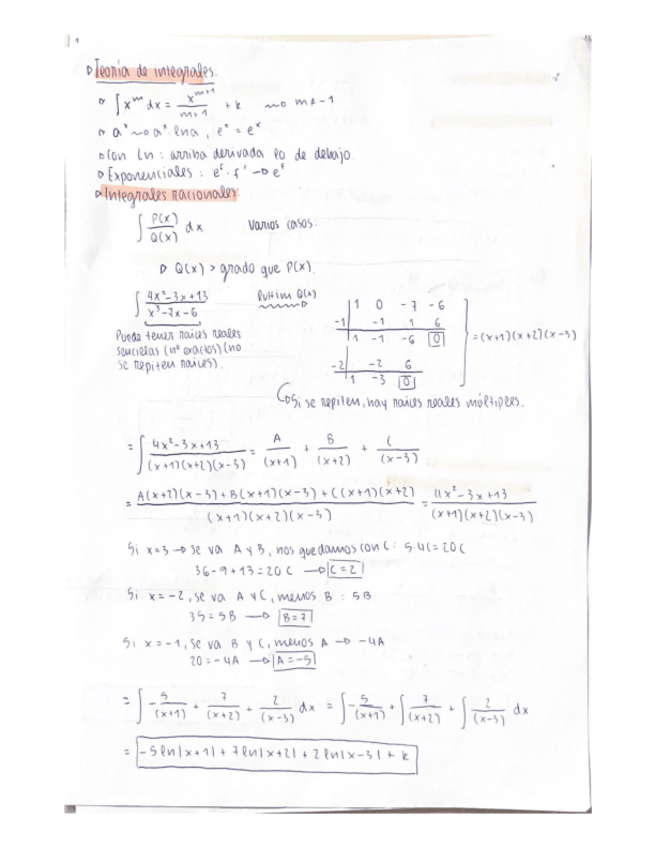 Teoría de integrales:
∫ x^m dx = x^(m+1)/(m+1) + k ~~o m ≠ -1
a^x ~o a^x · lna, e^x = e^x
Con Ln: arriba derivada lo de debajo.
Exponenciales: e^f · f' → e^f
Integrales racionales:
∫ P(x)/Q(x) dx Varios casos:
Q(x) > grado que P(x).
∫ (4x²-3x+13)/(x³-7x-6) Ruffini Q(x)
1 0 -7 -6
-1 -1 1 6
1 -1 -6 0
-2 -2 6
1 -3 0
= (x+1)(x+2)(x-3)
Puede tener raíces reales
sencillas (nº exactos) (no
se repiten raíces).
Si se repiten, hay raíces reales múltiples.
= ∫ (4x²-3x+13)/((x+1)(x+2)(x-3)) = A/(x+1) + B/(x+2) + C/(x-3)
= (A(x+2)(x-3) + B(x+1)(x-3) + C(x+1)(x+2))/((x+1)(x+2)(x-3)) = (4x²-3x+13)/((x+1)(x+2)(x-3))
Si x=3 → se va A y B, nos quedamos con C: 5·4C = 20C
36-9+13 = 20C → C=2
Si x=-2, se va A y C, menos B: 5B
35 = 5B → B=7
Si x=-1, se va B y C, menos A → -4A
20 = -4A → A=-5
= ∫ -5/(x+1) + 7/(x+2) + 2/(x-3) dx = ∫ -5/(x+1) + ∫ 7/(x+2) + ∫ 2/(x-3) dx
= -5 ln|x+1| + 7 ln|x+2| + 2 ln|x-3| + k